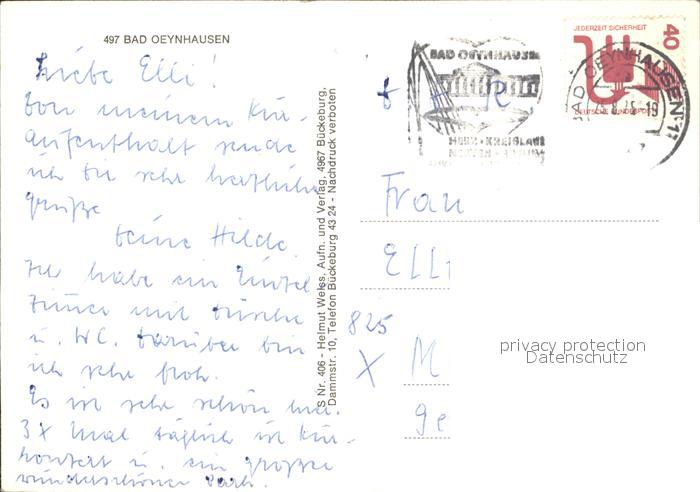 497 BAD OEYNHAUSEN
Liebe Elli!
Von meinem Kur-
aufenthalt sende
ich Dir sehr herzliche
Grüße
Deine Hilde.
Ich habe ein Einzel
Zimmer mit Dusche
u. WC. Darüber bin
ich sehr froh.
Es ist sehr schön hier.
3 X mal täglich ist Kur-
konzert u. ein großer
wunderschöner Park.
S Nr. 406 - Helmut Weiss, Aufn. und Verlag, 4967 Bückeburg,
Dammstr. 10, Telefon Bückeburg 43 24 - Nachdruck verboten
BAD OEYNHAUSEN
HERZ - KREISLAUF
JEDERZEIT SICHERHEIT
40
DEUTSCHE BUNDESPOST
BAD OEYNHAUSEN 11
Frau
Elli
825
X M
Ge
privacy protection
Datenschutz